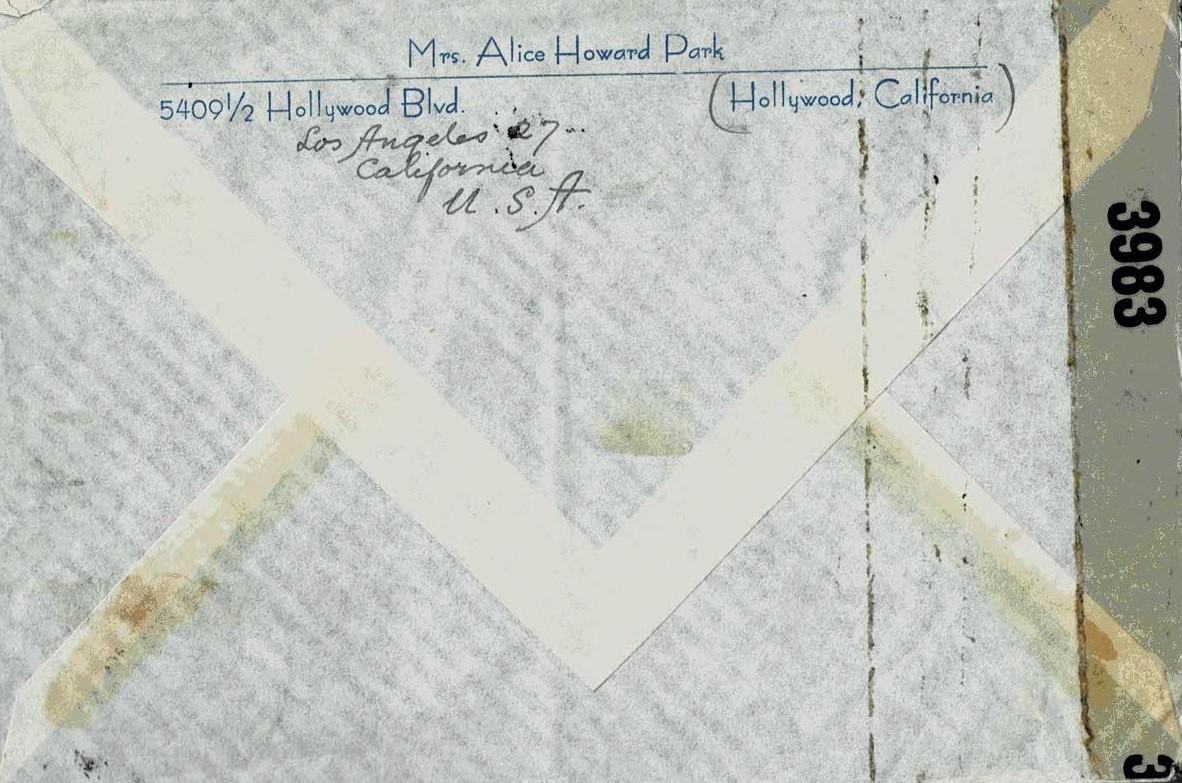 Mrs. Alice Howard Park
5409½ Hollywood Blvd. (Hollywood, California)
Los Angeles 27
California
U.S.A.
3983
3